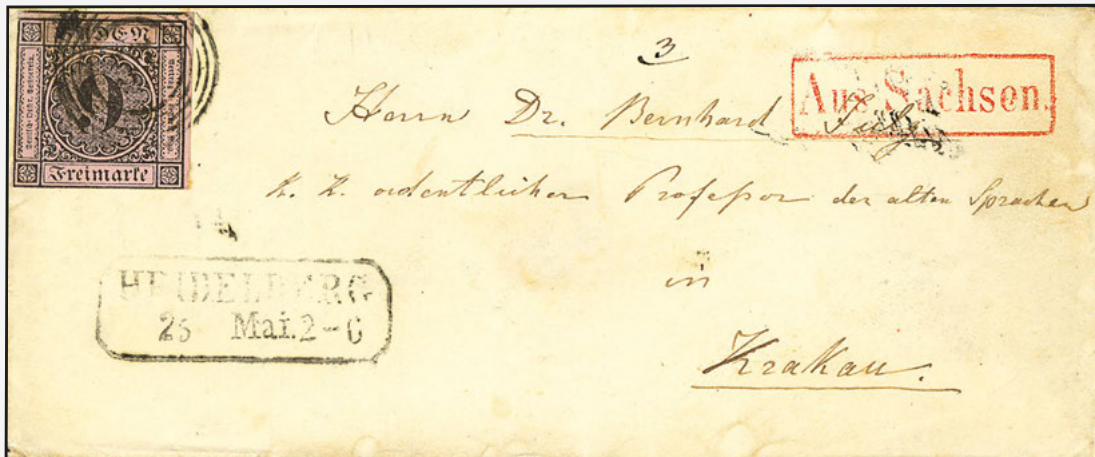 BADEN
9
Freimarke
3
Aus Sachsen.
Herrn Dr. Bernhard
K. K. ordentlicher Professor der alten Sprachen
in
Krakau.
HEIDELBERG
25 Mai. 2-6